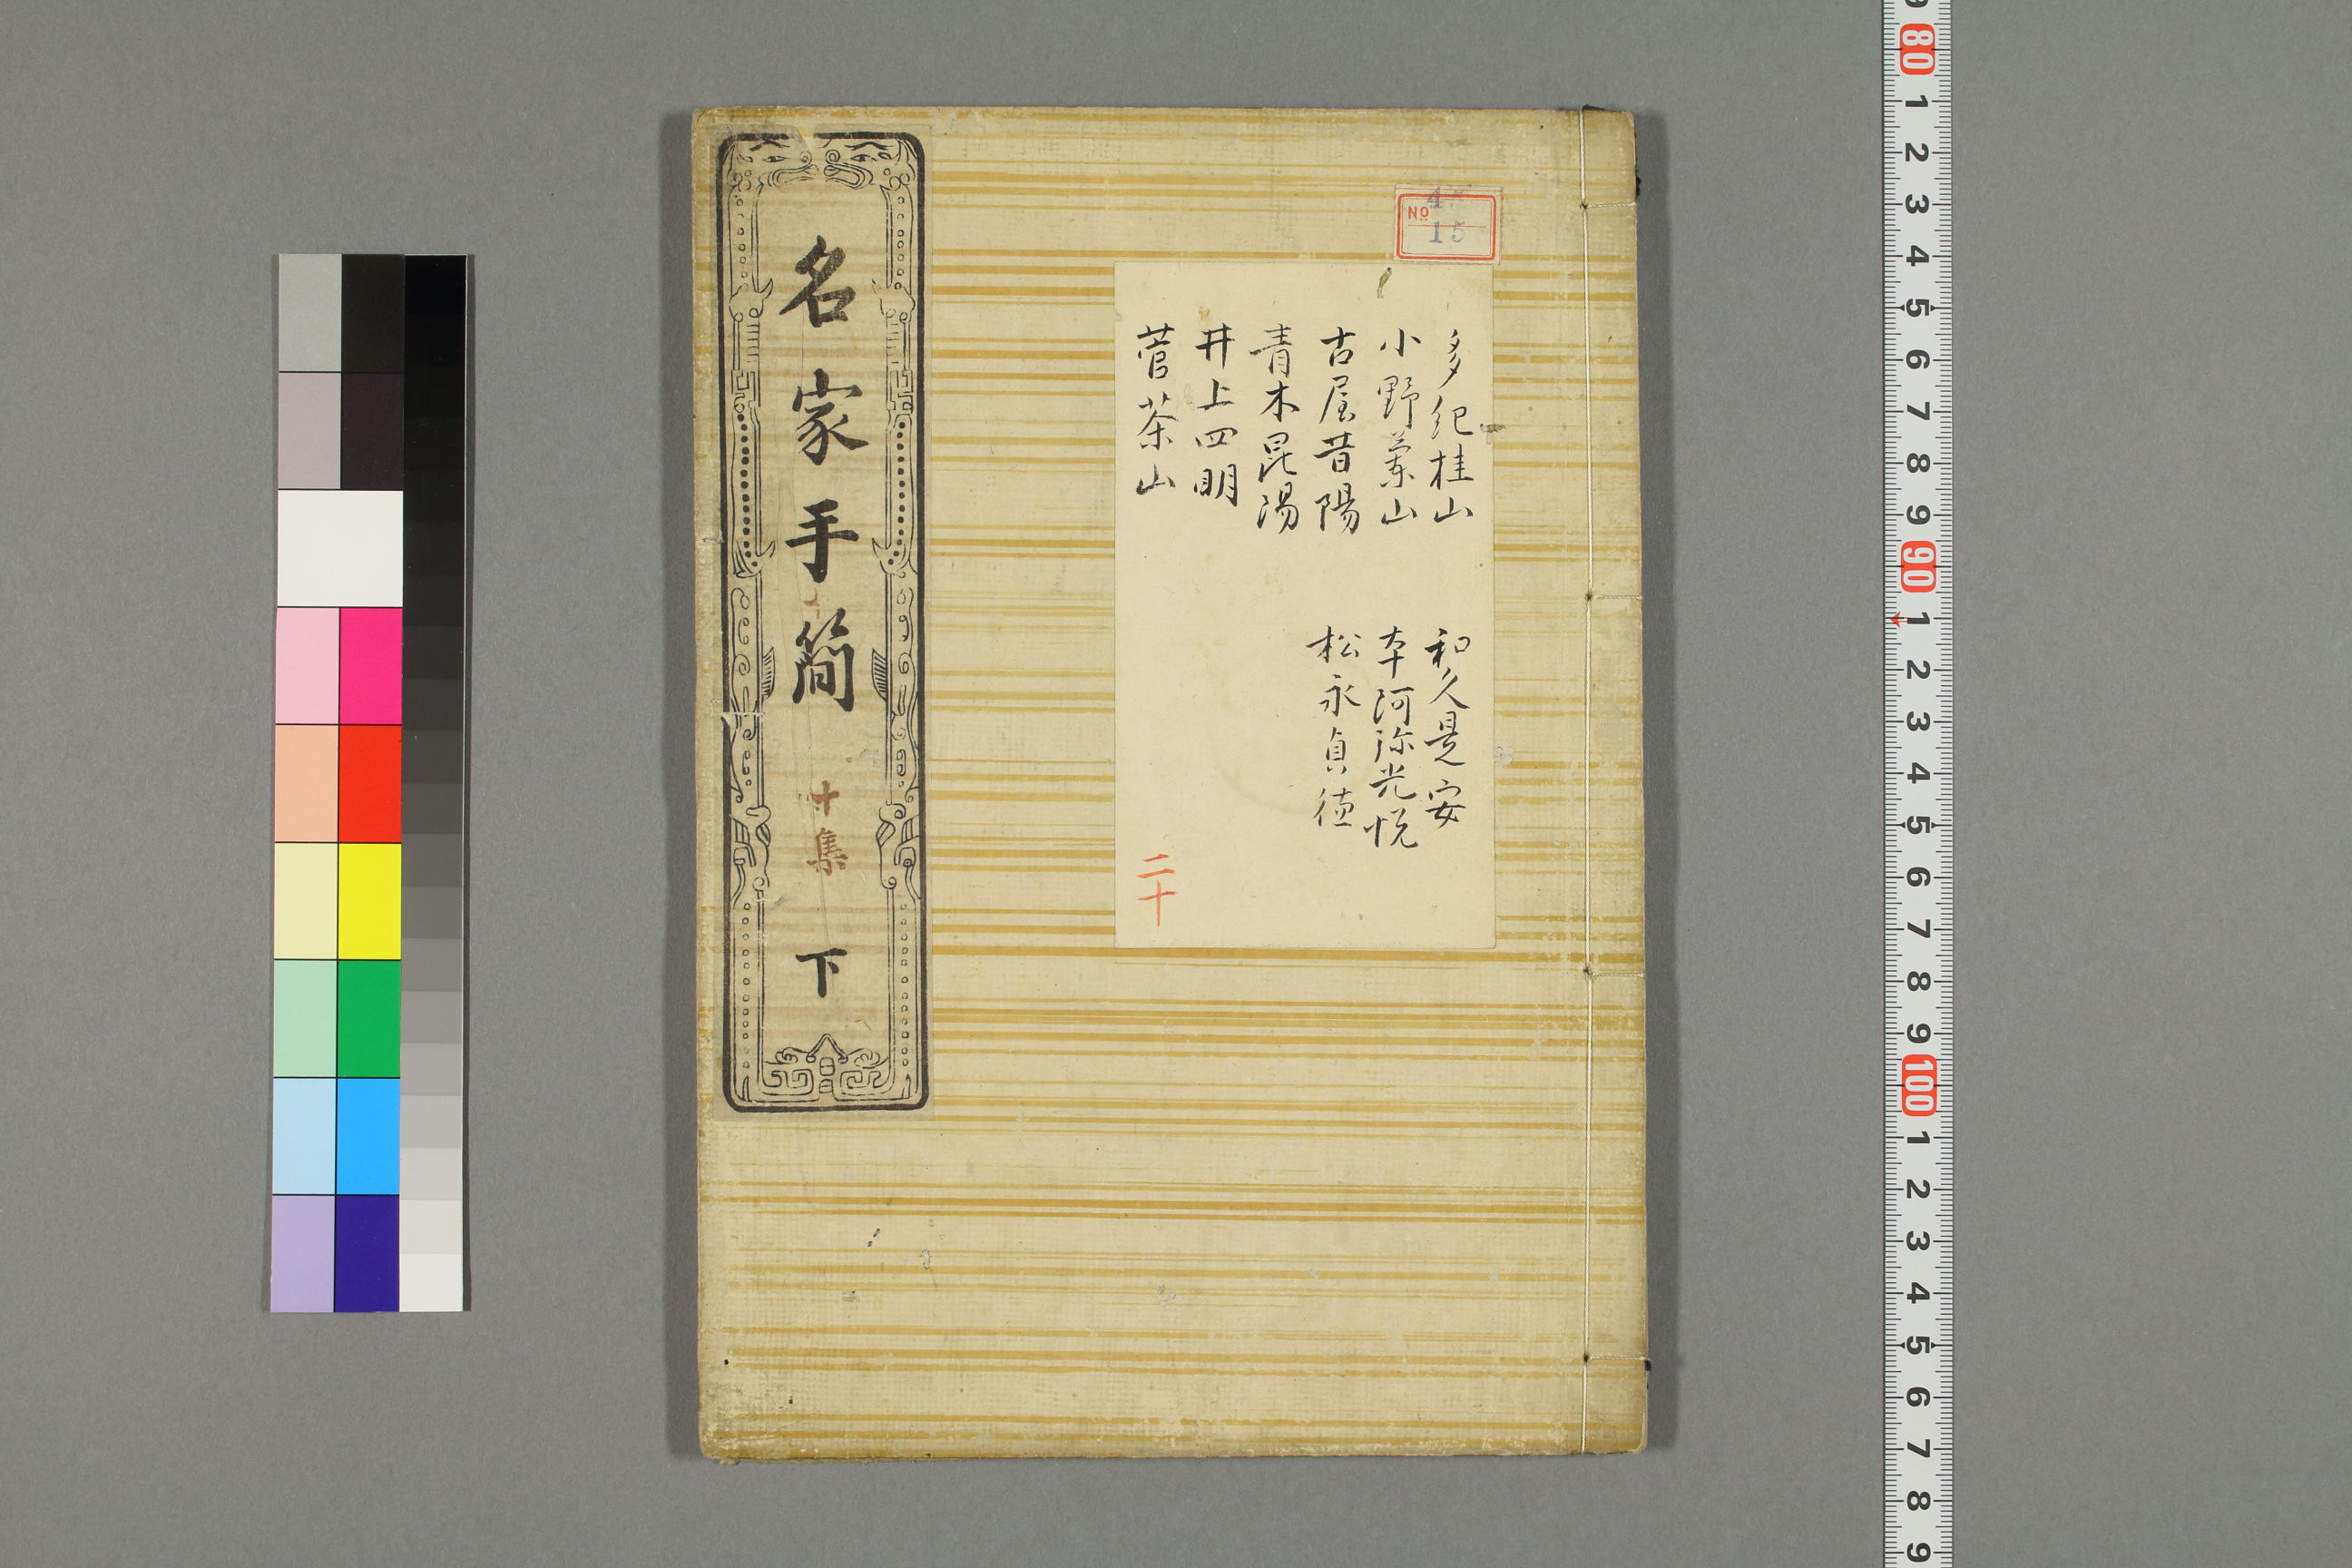 名家手簡 十集 下
No 45
15
多紀桂山
小野蘭山
古屋昔陽
青木昆陽
井上四明
菅茶山
和久是安
本阿弥光悦
松永貞徳
二十
9 80 1 2 3 4 5 6 7 8 9 90 1 2 3 4 5 6 7 8 9 100 1 2 3 4 5 6 7 8 9